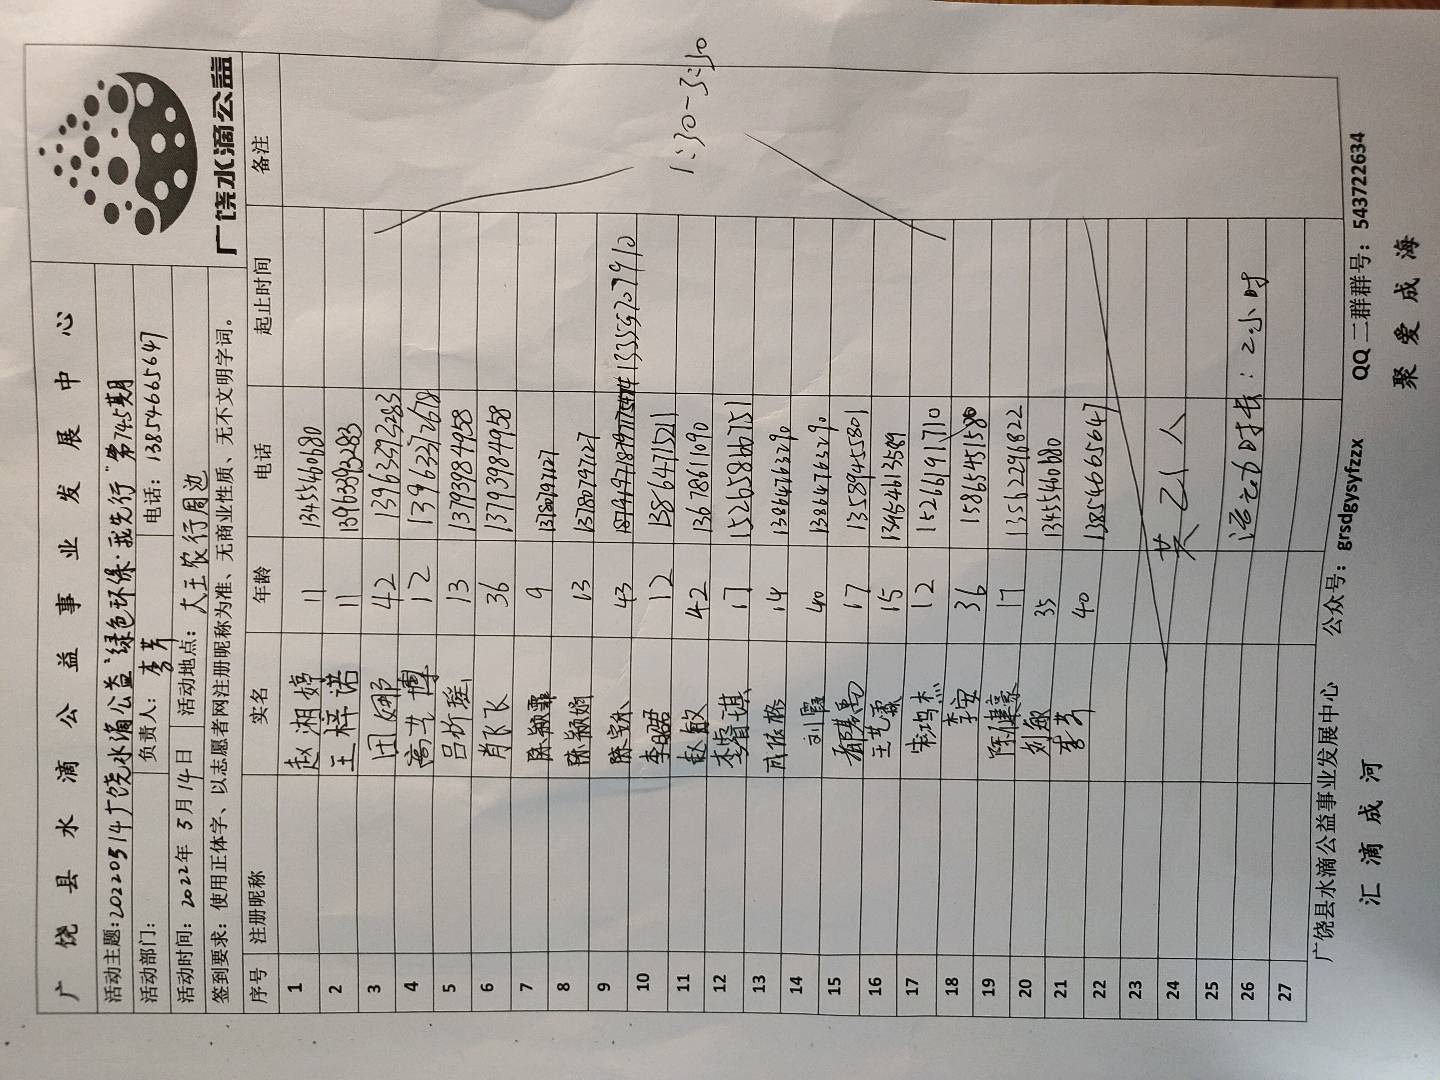 广饶县水滴公益事业发展中心
广饶水滴公益
活动主题:20220514广饶水滴公益"绿色环保·我先行"第745期
活动部门: 负责人: 李芳 电话: 13854665647
活动时间: 2022年5月14日 活动地点: 大王农行周边
签到要求: 使用正体字、以志愿者网注册昵称为准、无商业性质、无不文明字词。
序号 注册昵称 实名 年龄 电话 起止时间 备注
1 赵湘婷 11 13455460680
2 王梓诺 11 13963393283
3 田娜 42 13963393283
4 高艺博 12 13963372678
5 吕忻瑶 13 13793984958
6 肖飞飞 36 13793984958
7 陈颖霏 9
8 陈颖娴 13
9 43 13355707910
10 李曙 12 13864715211
11 赵敏 42 13678611090
12 李睿琪 17 15265866751
13 14 13864763290
14 刘霞 40 13864763290
15 17 13589455801
16 王艺霖 15 13454613589
17 宋鸿杰 12 15266191710
18 李安 36 15865451580
19 陈健豪 17 13562296822
20 刘敏 35 13455460680
21 李芳 40 13854665647
22
23
24 共21人
25
26 活动时长: 2小时
27
1:30-3:30
广饶县水滴公益事业发展中心 公众号: grsdgysyfzzx QQ 二群群号: 543722634
汇滴成河 聚爱成海